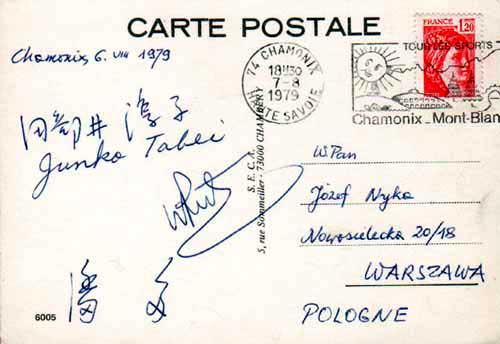 CARTE POSTALE
Chamonix 6. VIII 1979
田部井 淳子
Junko Tabei
潘 多
6005
S.E.C.A.
5, rue Sommeiller - 73000 CHAMBÉRY
74 CHAMONIX
18H30
7-8
1979
HTE SAVOIE
FRANCE
1,20
TOUS LES SPORTS
Chamonix_Mont-Blanc
WPan
Józef Nyka
Nowosielecka 20/18
WARSZAWA
POLOGNE